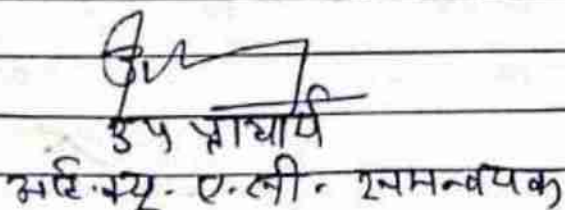 उप प्राचार्य
आई.क्यू. ए.सी. समन्वयक